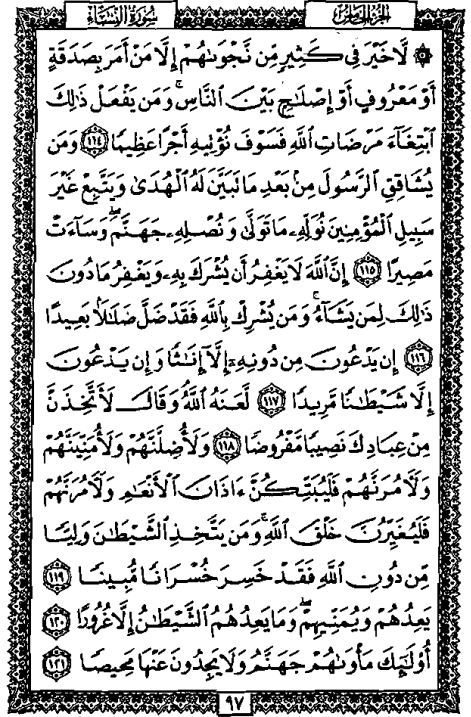 الجزء الخامس سورة النساء
۞ لَّا خَيْرَ فِي كَثِيرٍ مِّن نَّجْوَىٰهُمْ إِلَّا مَنْ أَمَرَ بِصَدَقَةٍ
أَوْ مَعْرُوفٍ أَوْ إِصْلَٰحٍۭ بَيْنَ النَّاسِ ۚ وَمَن يَفْعَلْ ذَٰلِكَ
ٱبْتِغَآءَ مَرْضَاتِ ٱللَّهِ فَسَوْفَ نُؤْتِيهِ أَجْرًا عَظِيمًا ١١٤ وَمَن
يُشَاقِقِ ٱلرَّسُولَ مِنۢ بَعْدِ مَا تَبَيَّنَ لَهُ ٱلْهُدَىٰ وَيَتَّبِعْ غَيْرَ
سَبِيلِ ٱلْمُؤْمِنِينَ نُوَلِّهِۦ مَا تَوَلَّىٰ وَنُصْلِهِۦ جَهَنَّمَ ۖ وَسَآءَتْ
مَصِيرًا ١١٥ إِنَّ ٱللَّهَ لَا يَغْفِرُ أَن يُشْرَكَ بِهِۦ وَيَغْفِرُ مَا دُونَ
ذَٰلِكَ لِمَن يَشَآءُ ۚ وَمَن يُشْرِكْ بِٱللَّهِ فَقَدْ ضَلَّ ضَلَٰلًۢا بَعِيدًا
١١٦ إِن يَدْعُونَ مِن دُونِهِۦٓ إِلَّآ إِنَٰثًا وَإِن يَدْعُونَ
إِلَّا شَيْطَٰنًا مَّرِيدًا ١١٧ لَّعَنَهُ ٱللَّهُ ۘ وَقَالَ لَأَتَّخِذَنَّ
مِنْ عِبَادِكَ نَصِيبًا مَّفْرُوضًا ١١٨ وَلَأُضِلَّنَّهُمْ وَلَأُمَنِّيَنَّهُمْ
وَلَءَامُرَنَّهُمْ فَلَيُبَتِّكُنَّ ءَاذَانَ ٱلْأَنْعَٰمِ وَلَءَامُرَنَّهُمْ
فَلَيُغَيِّرُنَّ خَلْقَ ٱللَّهِ ۚ وَمَن يَتَّخِذِ ٱلشَّيْطَٰنَ وَلِيًّا
مِّن دُونِ ٱللَّهِ فَقَدْ خَسِرَ خُسْرَانًا مُّبِينًا ١١٩
يَعِدُهُمْ وَيُمَنِّيهِمْ ۖ وَمَا يَعِدُهُمُ ٱلشَّيْطَٰنُ إِلَّا غُرُورًا ١٢٠
أُو۟لَٰٓئِكَ مَأْوَىٰهُمْ جَهَنَّمُ وَلَا يَجِدُونَ عَنْهَا مَحِيصًا ١٢١
٩٧